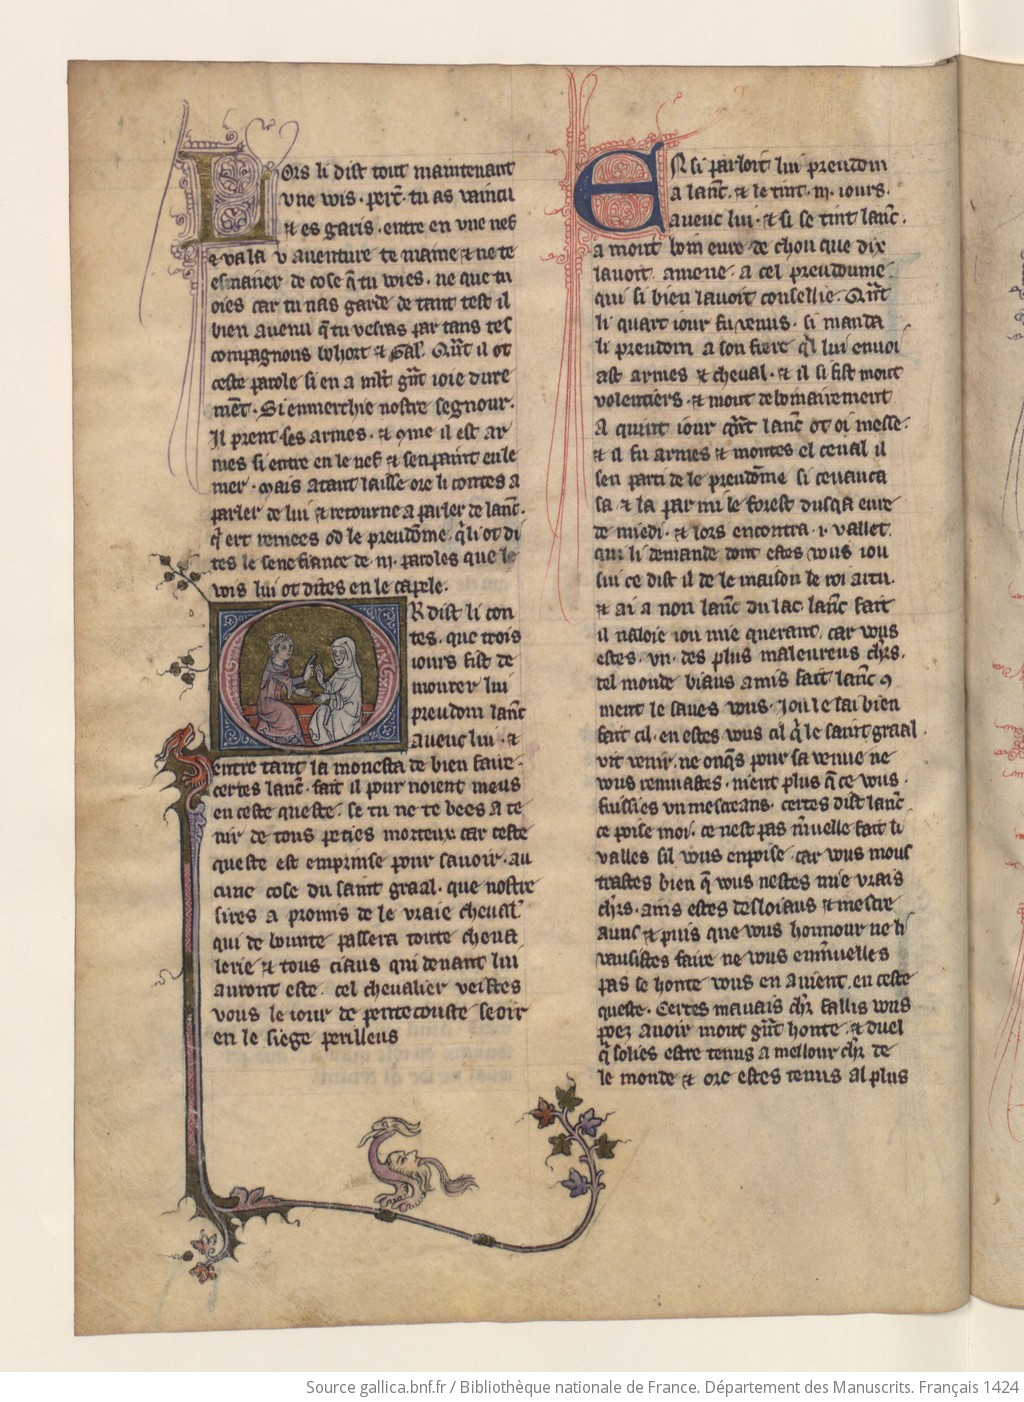 Lors li dist tout maintenant
vne vois. perč. tu as vaincu
& es garis. entre en vne nef
& va la v auenture te maine & ne te
esmaier de cose q̃ tu voies. ne que tu
oies car tu nas garde de tant test il
bien auenu q̃ tu verras par tans tes
compagnons bohort & Gal. Qñt il ot
ceste parole si en a mlt gñt ioie dure
mẽt. Si enmerchie nostre segnour.
Il prent ses armes. & 9me il est ar
mes si entre en le nef & sen paint en le
mer. Mais atant laisse ore li contes a
parler de lui & retourne a parler de lanč.
q̃ ert remees od le preudõme. q̃ li ot di
tes le senefiance de .iij. paroles que le
vois lui ot dites en le capele.
OR dist li con
tes. que trois
iours fist de
mourer lui
preudom lanč
auenc lui. &
entre tant la monesta de bien faire.
certes lanč. fait il pour noient meus
en ceste queste. se tu ne te bees a te
nir de tous pecies morteux car ceste
queste est emprinse pour sauoir. au
cune cose du saint graal. que nostre
sires a promis de le vraie cheual.
qui de bonte passera toute cheua
lerie & tous ciaus qui deuant lui
auront este. cel cheualier veistes
vous le iour de pentecouste seoir
en le siege perilleus
ENsi parloit lui preudom
a lanč. & le tint .iij. iours.
auenc lui. & si se tint lanč.
a mout bom eure de chou que dix
lauoit amene. a cel preudoume.
qui si bien lauoit consellie. Qñt
li quart iour fu venus. si manda
li preudom a son frere q̃l lui enuoi
ast armes & cheual. & il si fist mout
volentiers. & mout debonairement
A quint iour q̃nt lanč ot oi messe.
& il fu armes & montes el ceual il
sen parti de le preudõme si ceuauca
sa & la par mi le forest dusqa eure
de miedi. & lors encontra .i. vallet.
qui li demande dont estes vous iou
sui ce dist il de le maison le roi artu.
& ai a non lanč du lac lanč fait
il naloie iou mie querant. car vous
estes. vn. des plus maleureus chr̃s.
del monde biaus amis fait lanč 9
ment le saues vous. Jou le sai bien
fait cil. en estes vous cil q̃ le saint graal.
vit venir. ne onq̃s pour sa venue ne
vous remuastes. nient plus q̃ ce vous.
fuissies vn mescreans. certes dist lanč.
ce poise moi. ce nest pas m̃uelle fait li
valles sil vous enpoise. car vous mous
trastes bien q̃ vous nestes mie vrais
chr̃s. ains estes desloiaus & mescre
auns & puis que vous honnour ne li
vausistes faire ne vous esm̃uelles
pas se honte vous en auient. en ceste
queste. Certes mauais chr̃ fallis vous
poez auoir mout gñt honte. & duel
q̃ solies estre tenus a mellour chr̃ de
le monde & ore estes tenus al plus
Source gallica.bnf.fr / Bibliothèque nationale de France. Département des Manuscrits. Français 1424